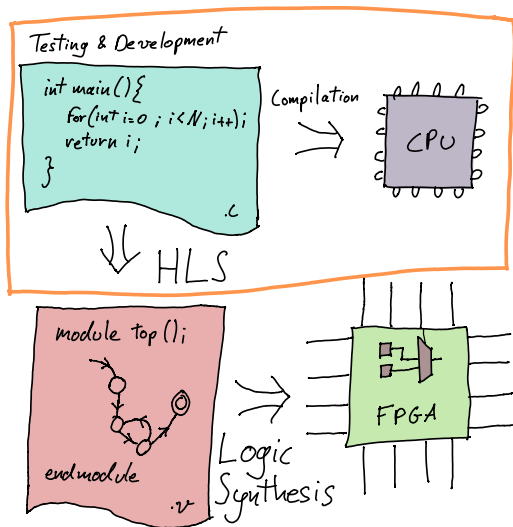 Testing & Development
int main(){
for(int i=0 ; i<N; i++);
return i;
}
.c
Compilation
CPU
HLS
module top();
endmodule
.v
Logic
Synthesis
FPGA